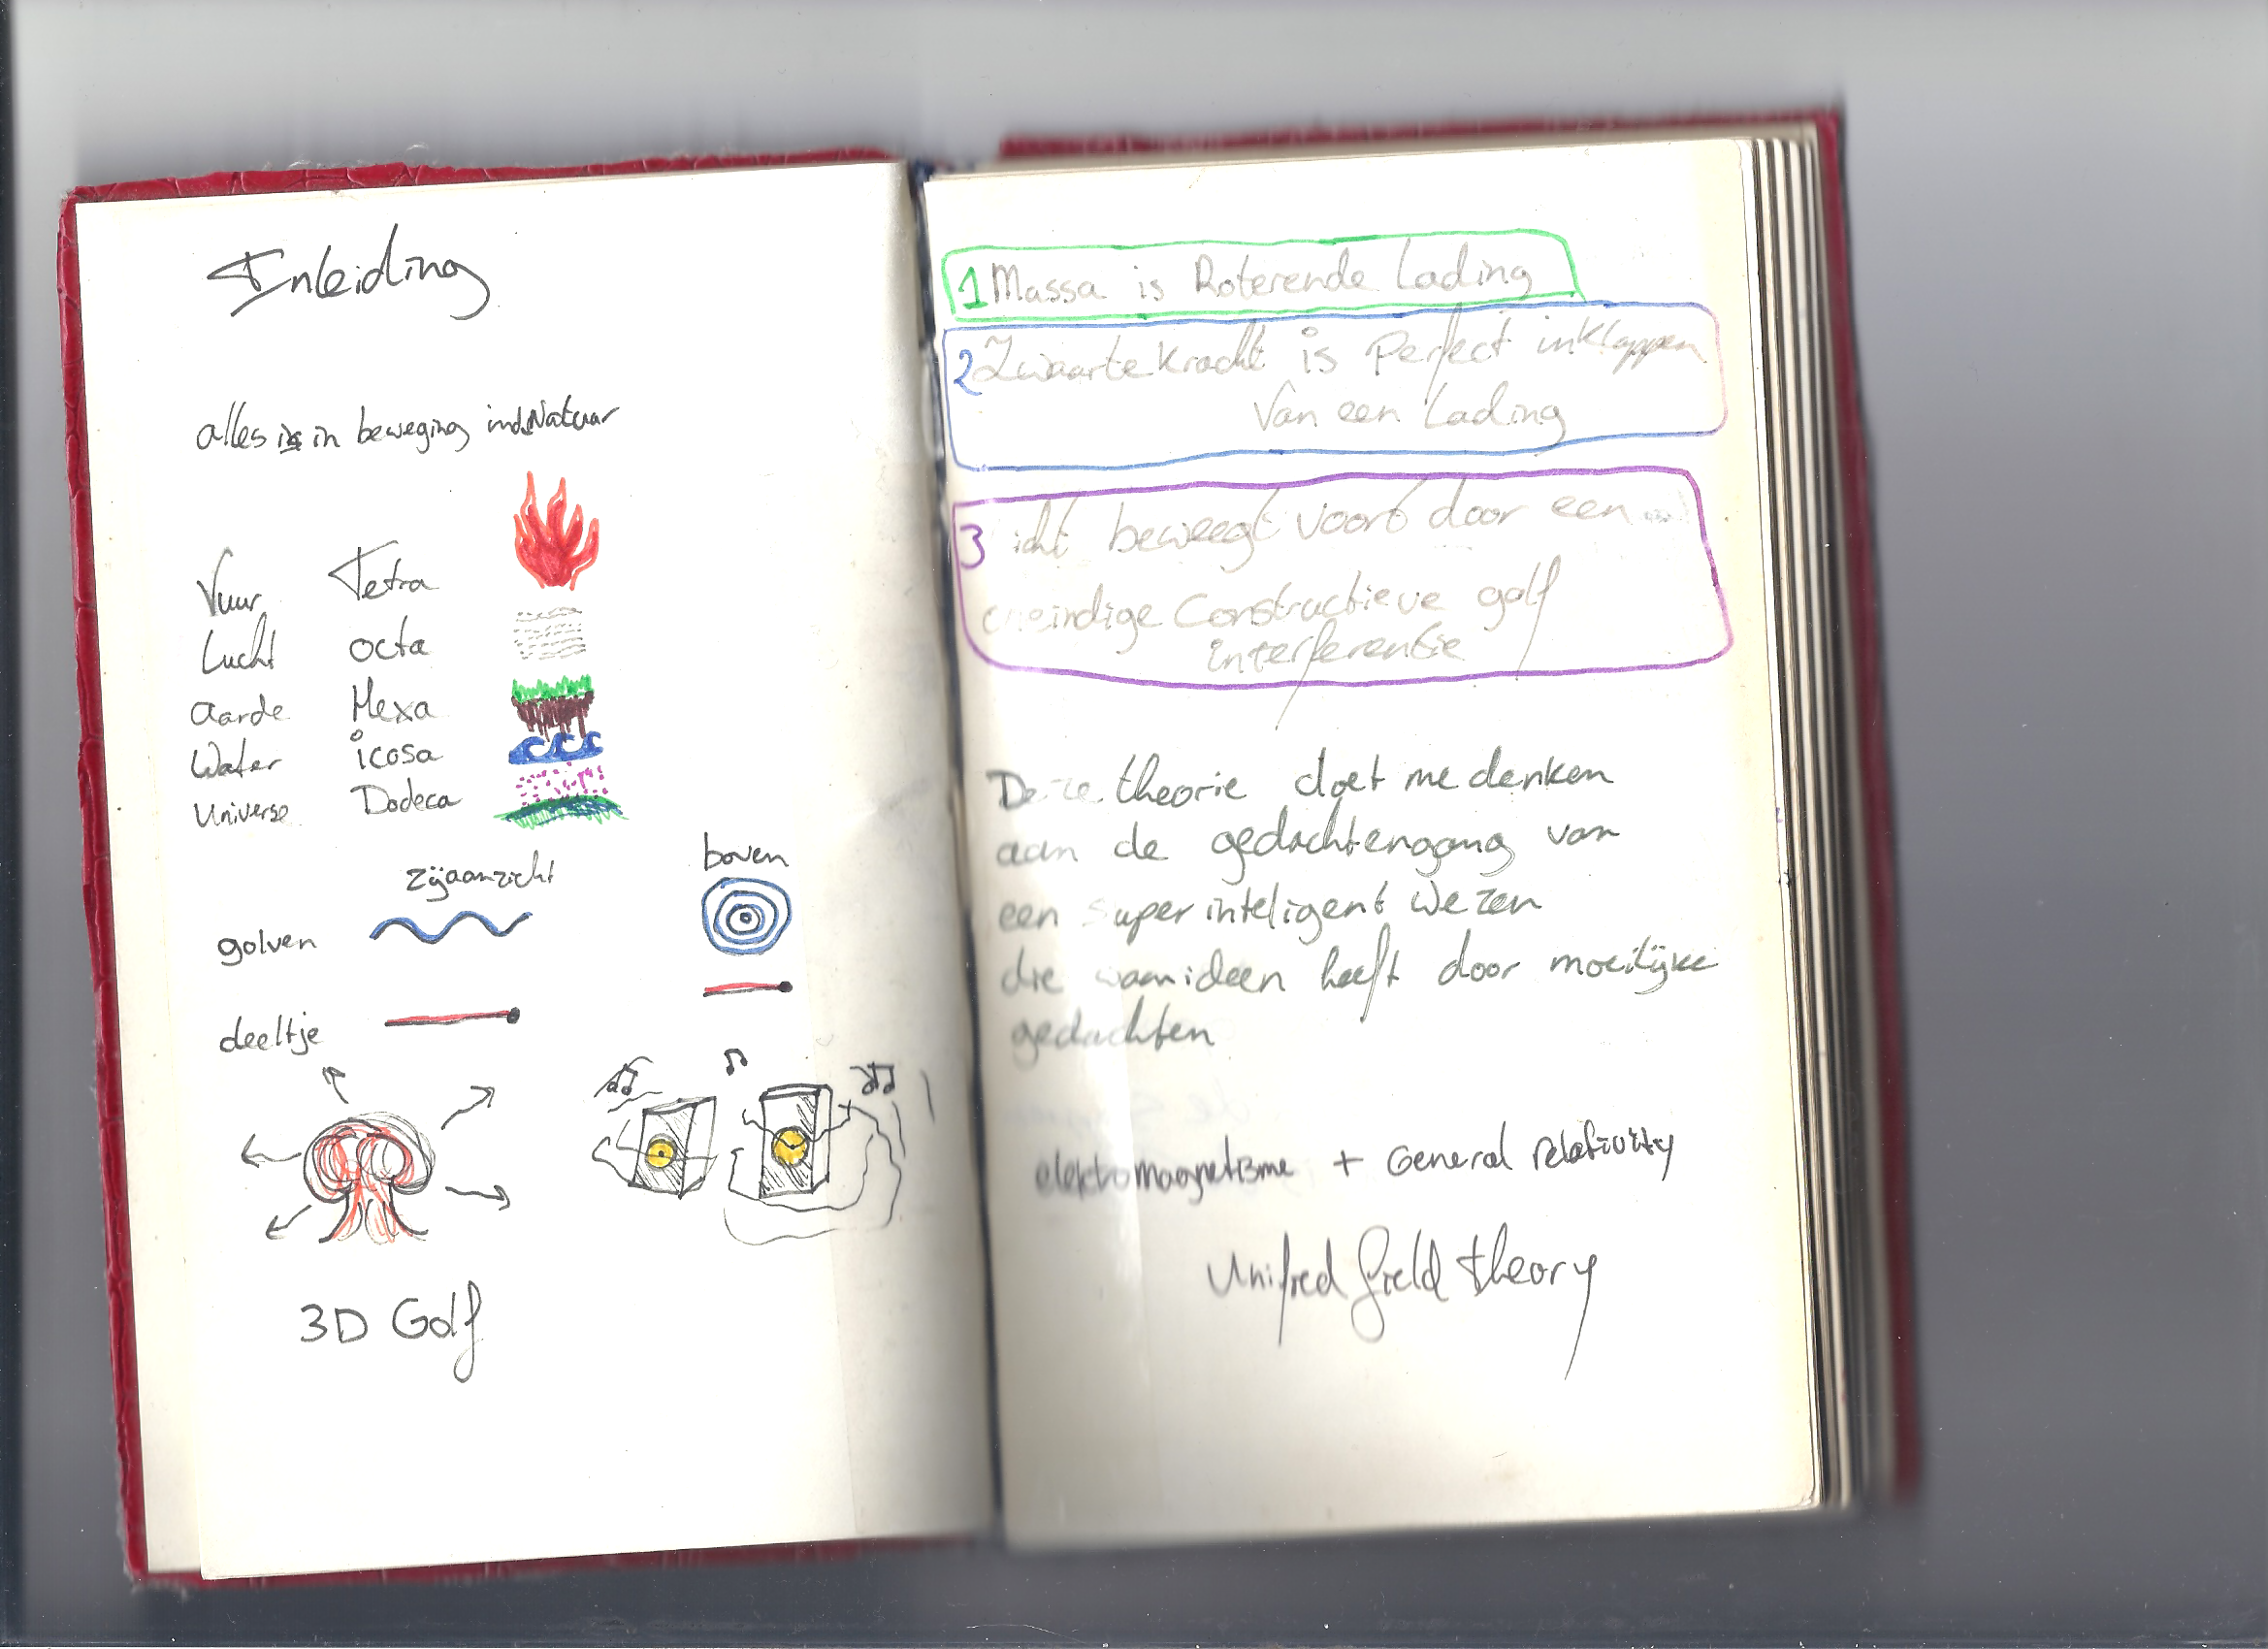 Inleiding
alles is in beweging in de Natuur
Vuur Tetra
Lucht octa
aarde Hexa
Water icosa
Universe Dodeca
zijaanzicht boven
golven
deeltje
3D Golf
1 Massa is Roterende Lading
2 Zwaartekracht is Perfect inklappen
Van een Lading
3 icht beweegt voort door een
oneindige Constructieve golf
interferentie
Deze theorie doet me denken
aan de gedachtengang van
een super inteligent wezen
die waanideen heeft door moeilijke
gedachten
elektromagnetisme + General relativity
Unified field theory